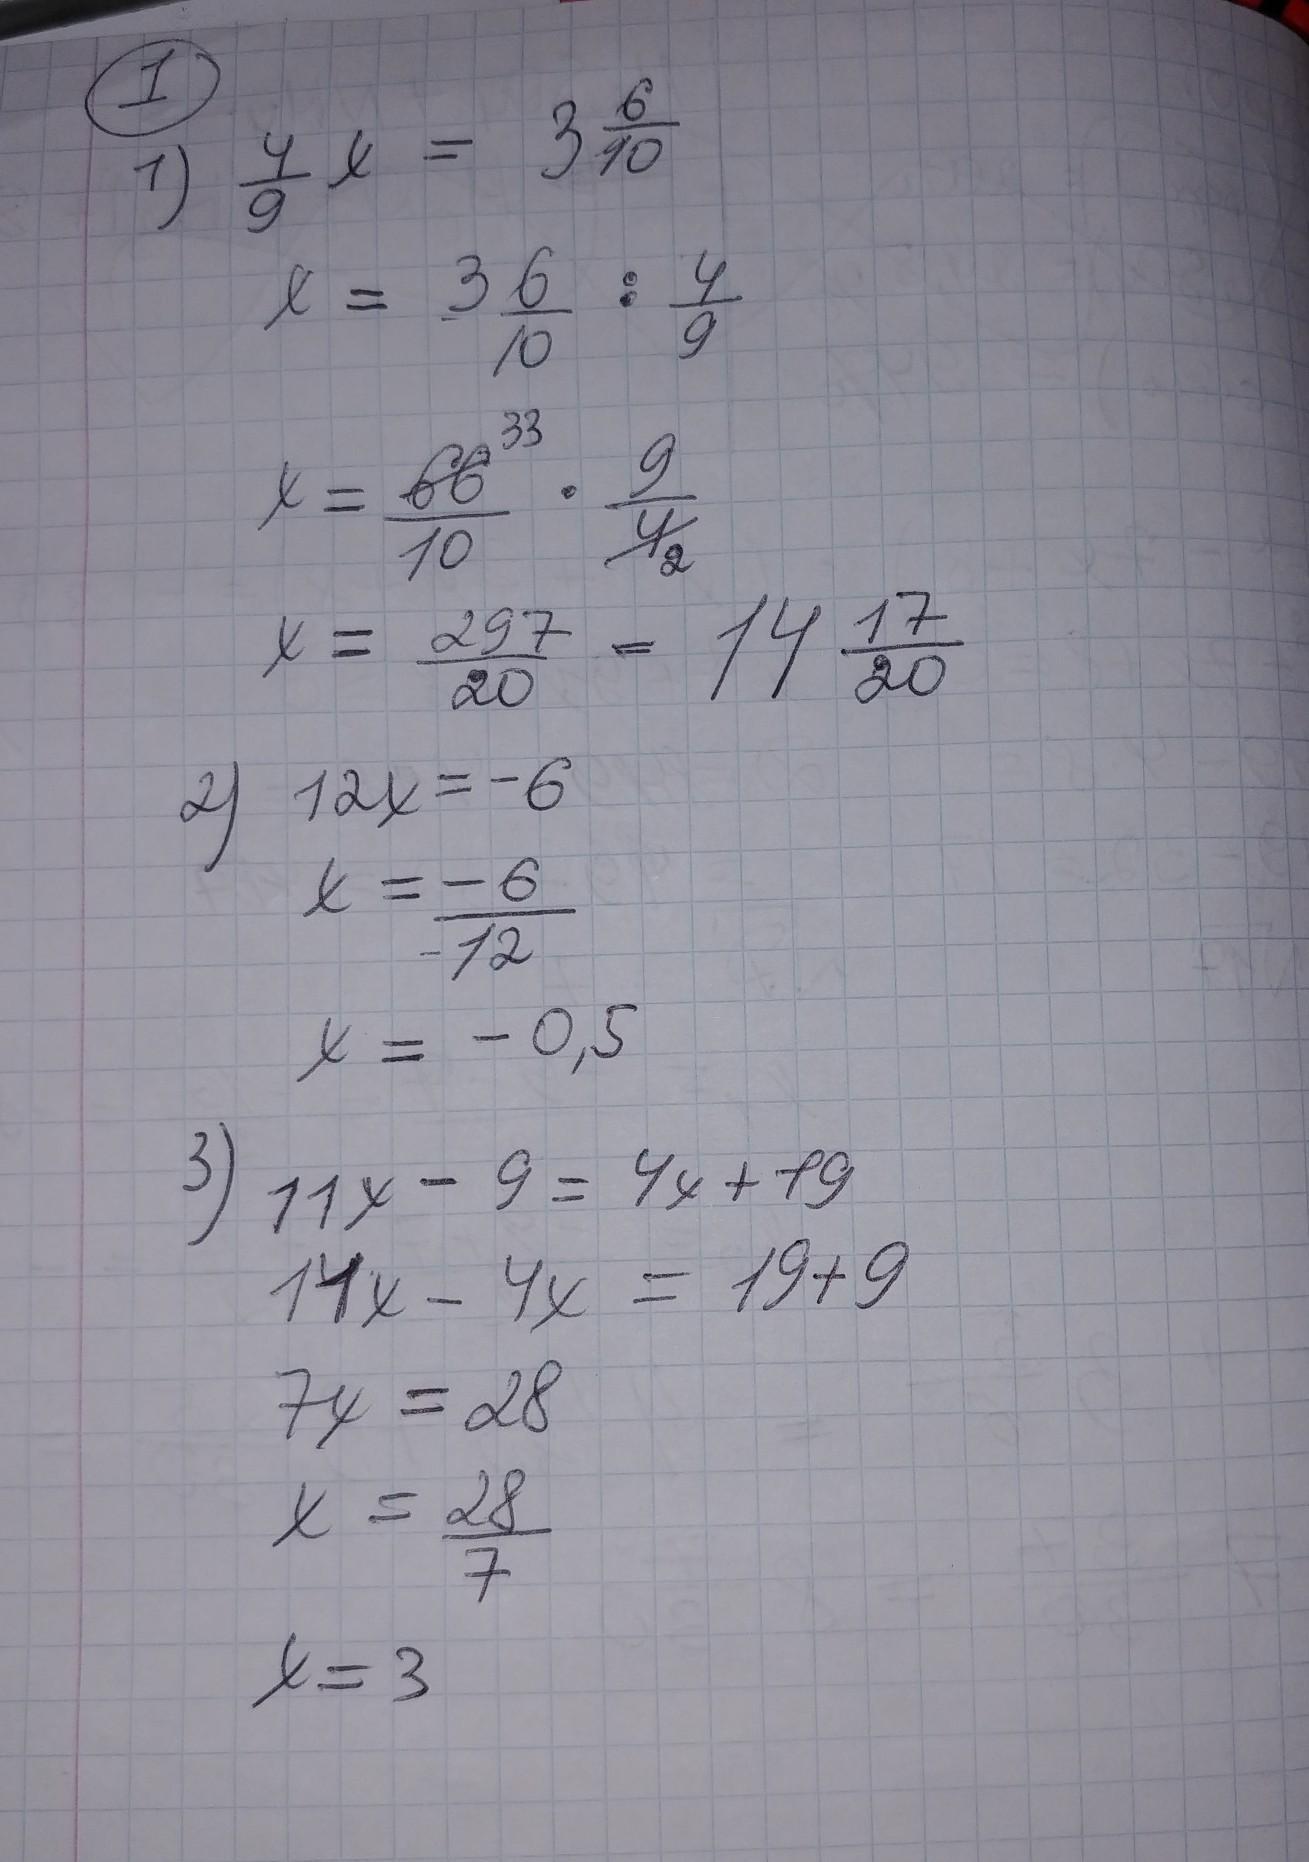 I
1) 4/9 x = 3 6/10
x = 3 6/10 : 4/9
x = 66/10 33 · 9/4 2
x = 297/20 = 14 17/20
2) 12x = -6
x = -6/-12
x = -0,5
3) 11x - 9 = 4x + 19
11x - 4x = 19 + 9
7x = 28
x = 28/7
x = 3